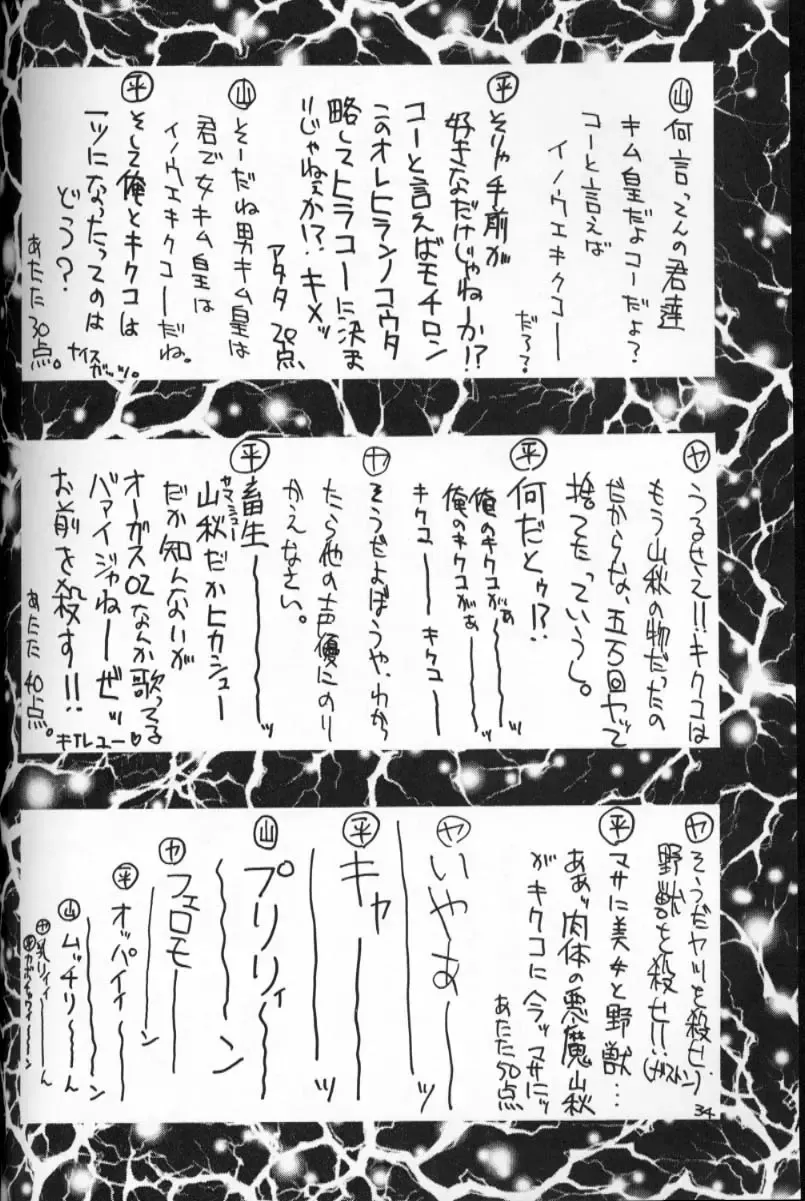 山 何言ってんの君達
キム皇だよコーだよ?
コーと言えば
イノウエキクコー
だろ?
平 そりゃ手前が
好きなだけじゃねーか!?
コーと言えばモチロン
このオレヒランノコウタ
略してヒラコーに決ま
りじゃねぇか!?キメッ
アタタ 20点、
山 そーだね男キム皇は
君で女キム皇は
イノウエキクコーだね。
平 そして俺とキクコは
一ツになったってのは
どう?
ナイスガッツ。
あたた30点。
ヤ うるせえ!!キクコは
もう山秋の物だったの
だからな、五万回ヤッて
捨てたっていうし。
平 何だとゥ!?
俺のキクコがぁ〜〜ッ
俺のキクコがぁ〜〜ッ
キクコーーキクコーー
ヤ そうだよぼうや、わから
たら他の声優にのり
かえなさい。
平 畜生〜〜〜ッ
山秋だかヒカシュー
ヤマシュー
だか知んないが
オーガス02なんか歌ってる
バァイジャねーぜッ
お前を殺す!!
キTレユー♡
あたた40点。
ヤ そうだヤツを殺せ、
野獣を殺せ!!(ガストン)
平 マサに美女と野獣…
ああッ肉体の悪魔山秋
がキクコに今ッマサにッ
あたた50点
ヤ いやあ〜〜ッ
平 キャ〜〜〜ッ
山 プリリィ〜〜ン
ヤ フェロモーーン
平 オッパイィ〜〜ン
山 ムッチリ〜〜ん
ヤ 乳リィィ〜〜ん
34